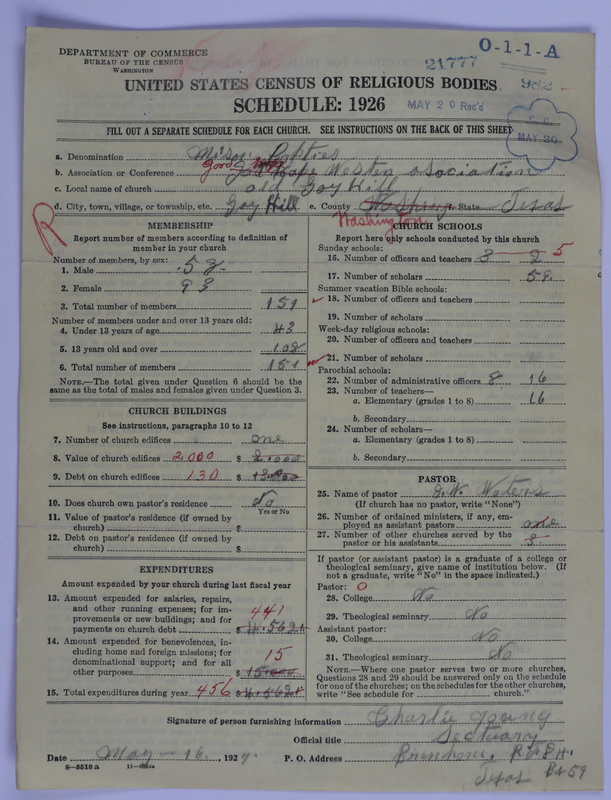 DEPARTMENT OF COMMERCE
BUREAU OF THE CENSUS
WASHINGTON
21777
O-1-1-A
982
UNITED STATES CENSUS OF RELIGIOUS BODIES
SCHEDULE: 1926
MAY 20 Rec'd
C. C.
MAY 20
FILL OUT A SEPARATE SCHEDULE FOR EACH CHURCH. SEE INSTRUCTIONS ON THE BACK OF THIS SHEET
a. Denomination
b. Association or Conference Good Hope Western asociation
c. Local name of church old Goy Hill
d. City, town, village, or township, etc. Goy Hill e. County Washington f. State Texas
R
MEMBERSHIP
Report number of members according to definition of member in your church
Number of members, by sex:
1. Male 58
2. Female 93
3. Total number of members 151
Number of members under and over 13 years old:
4. Under 13 years of age 43
5. 13 years old and over 108
6. Total number of members 151
NOTE.—The total given under Question 6 should be the same as the total of males and females given under Question 3.
CHURCH BUILDINGS
See instructions, paragraphs 10 to 12
7. Number of church edifices one
8. Value of church edifices 2,000 $ 2,000
9. Debt on church edifices 130 $
10. Does church own pastor's residence No
Yes or No
11. Value of pastor's residence (if owned by church) $
12. Debt on pastor's residence (if owned by church) $
EXPENDITURES
Amount expended by your church during last fiscal year
13. Amount expended for salaries, repairs, and other running expenses; for improvements or new buildings; and for payments on church debt 441 $
14. Amount expended for benevolences, including home and foreign missions; for denominational support; and for all other purposes 15 $
15. Total expenditures during year 456 $
CHURCH SCHOOLS
Report here only schools conducted by this church
Sunday schools:
16. Number of officers and teachers 3 2 5
17. Number of scholars 59
Summer vacation Bible schools:
18. Number of officers and teachers
19. Number of scholars
Week-day religious schools:
20. Number of officers and teachers
21. Number of scholars
Parochial schools:
22. Number of administrative officers 8 16
23. Number of teachers—
a. Elementary (grades 1 to 8) 16
b. Secondary
24. Number of scholars—
a. Elementary (grades 1 to 8)
b. Secondary
PASTOR
25. Name of pastor Waters
(If church has no pastor, write "None")
26. Number of ordained ministers, if any, employed as assistant pastors one
27. Number of other churches served by the pastor or his assistants 3
If pastor (or assistant pastor) is a graduate of a college or theological seminary, give name of institution below. (If not a graduate, write "No" in the space indicated.)
Pastor: O
28. College No
29. Theological seminary No
Assistant pastor:
30. College No
31. Theological seminary No
NOTE.—Where one pastor serves two or more churches, Questions 28 and 29 should be answered only on the schedule for one of the churches; on the schedules for the other churches, write "See schedule for church."
Signature of person furnishing information Charlie young
Official title Sectuary
Date May 16, 1927. P. O. Address
Texas Bx 59
8—5518a